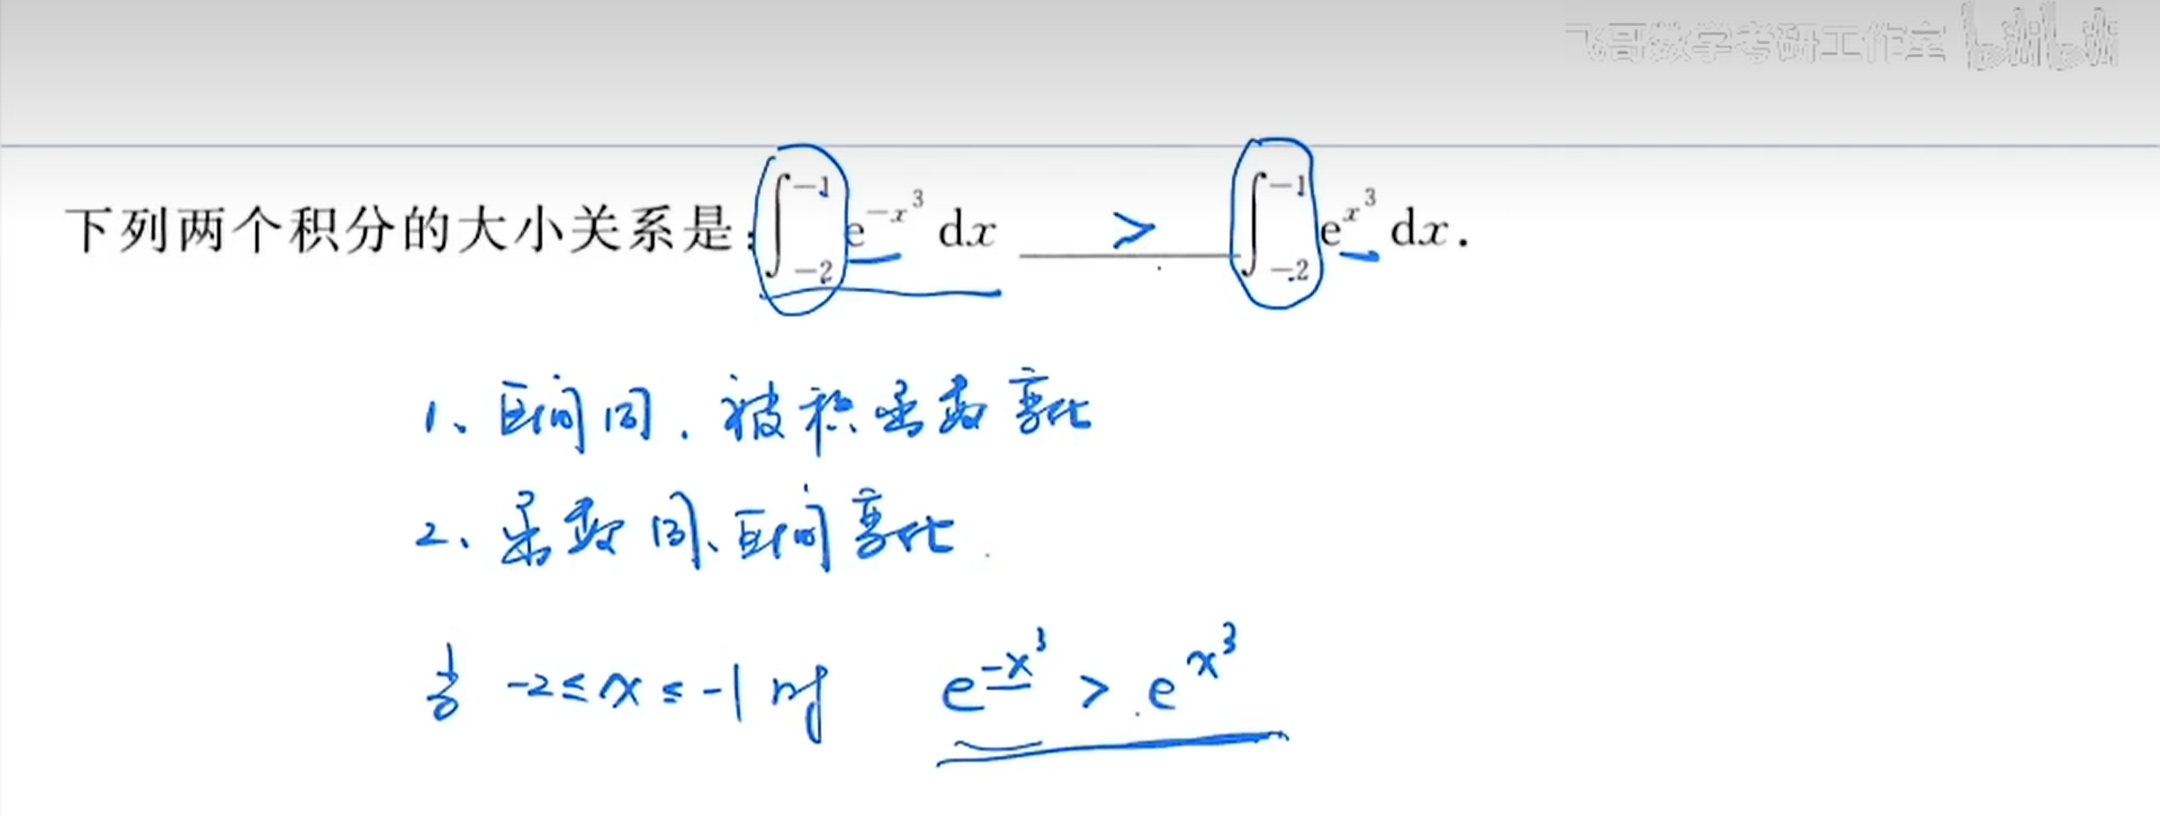 飞哥数学考研工作室 bilibili
下列两个积分的大小关系是:∫_{-2}^{-1} e^{-x^3} dx > ∫_{-2}^{-1} e^{x^3} dx.
1、区间同.被积函数变化
2、函数同、区间变化.
当 -2≤x≤-1时 e^{-x^3} > e^{x^3}